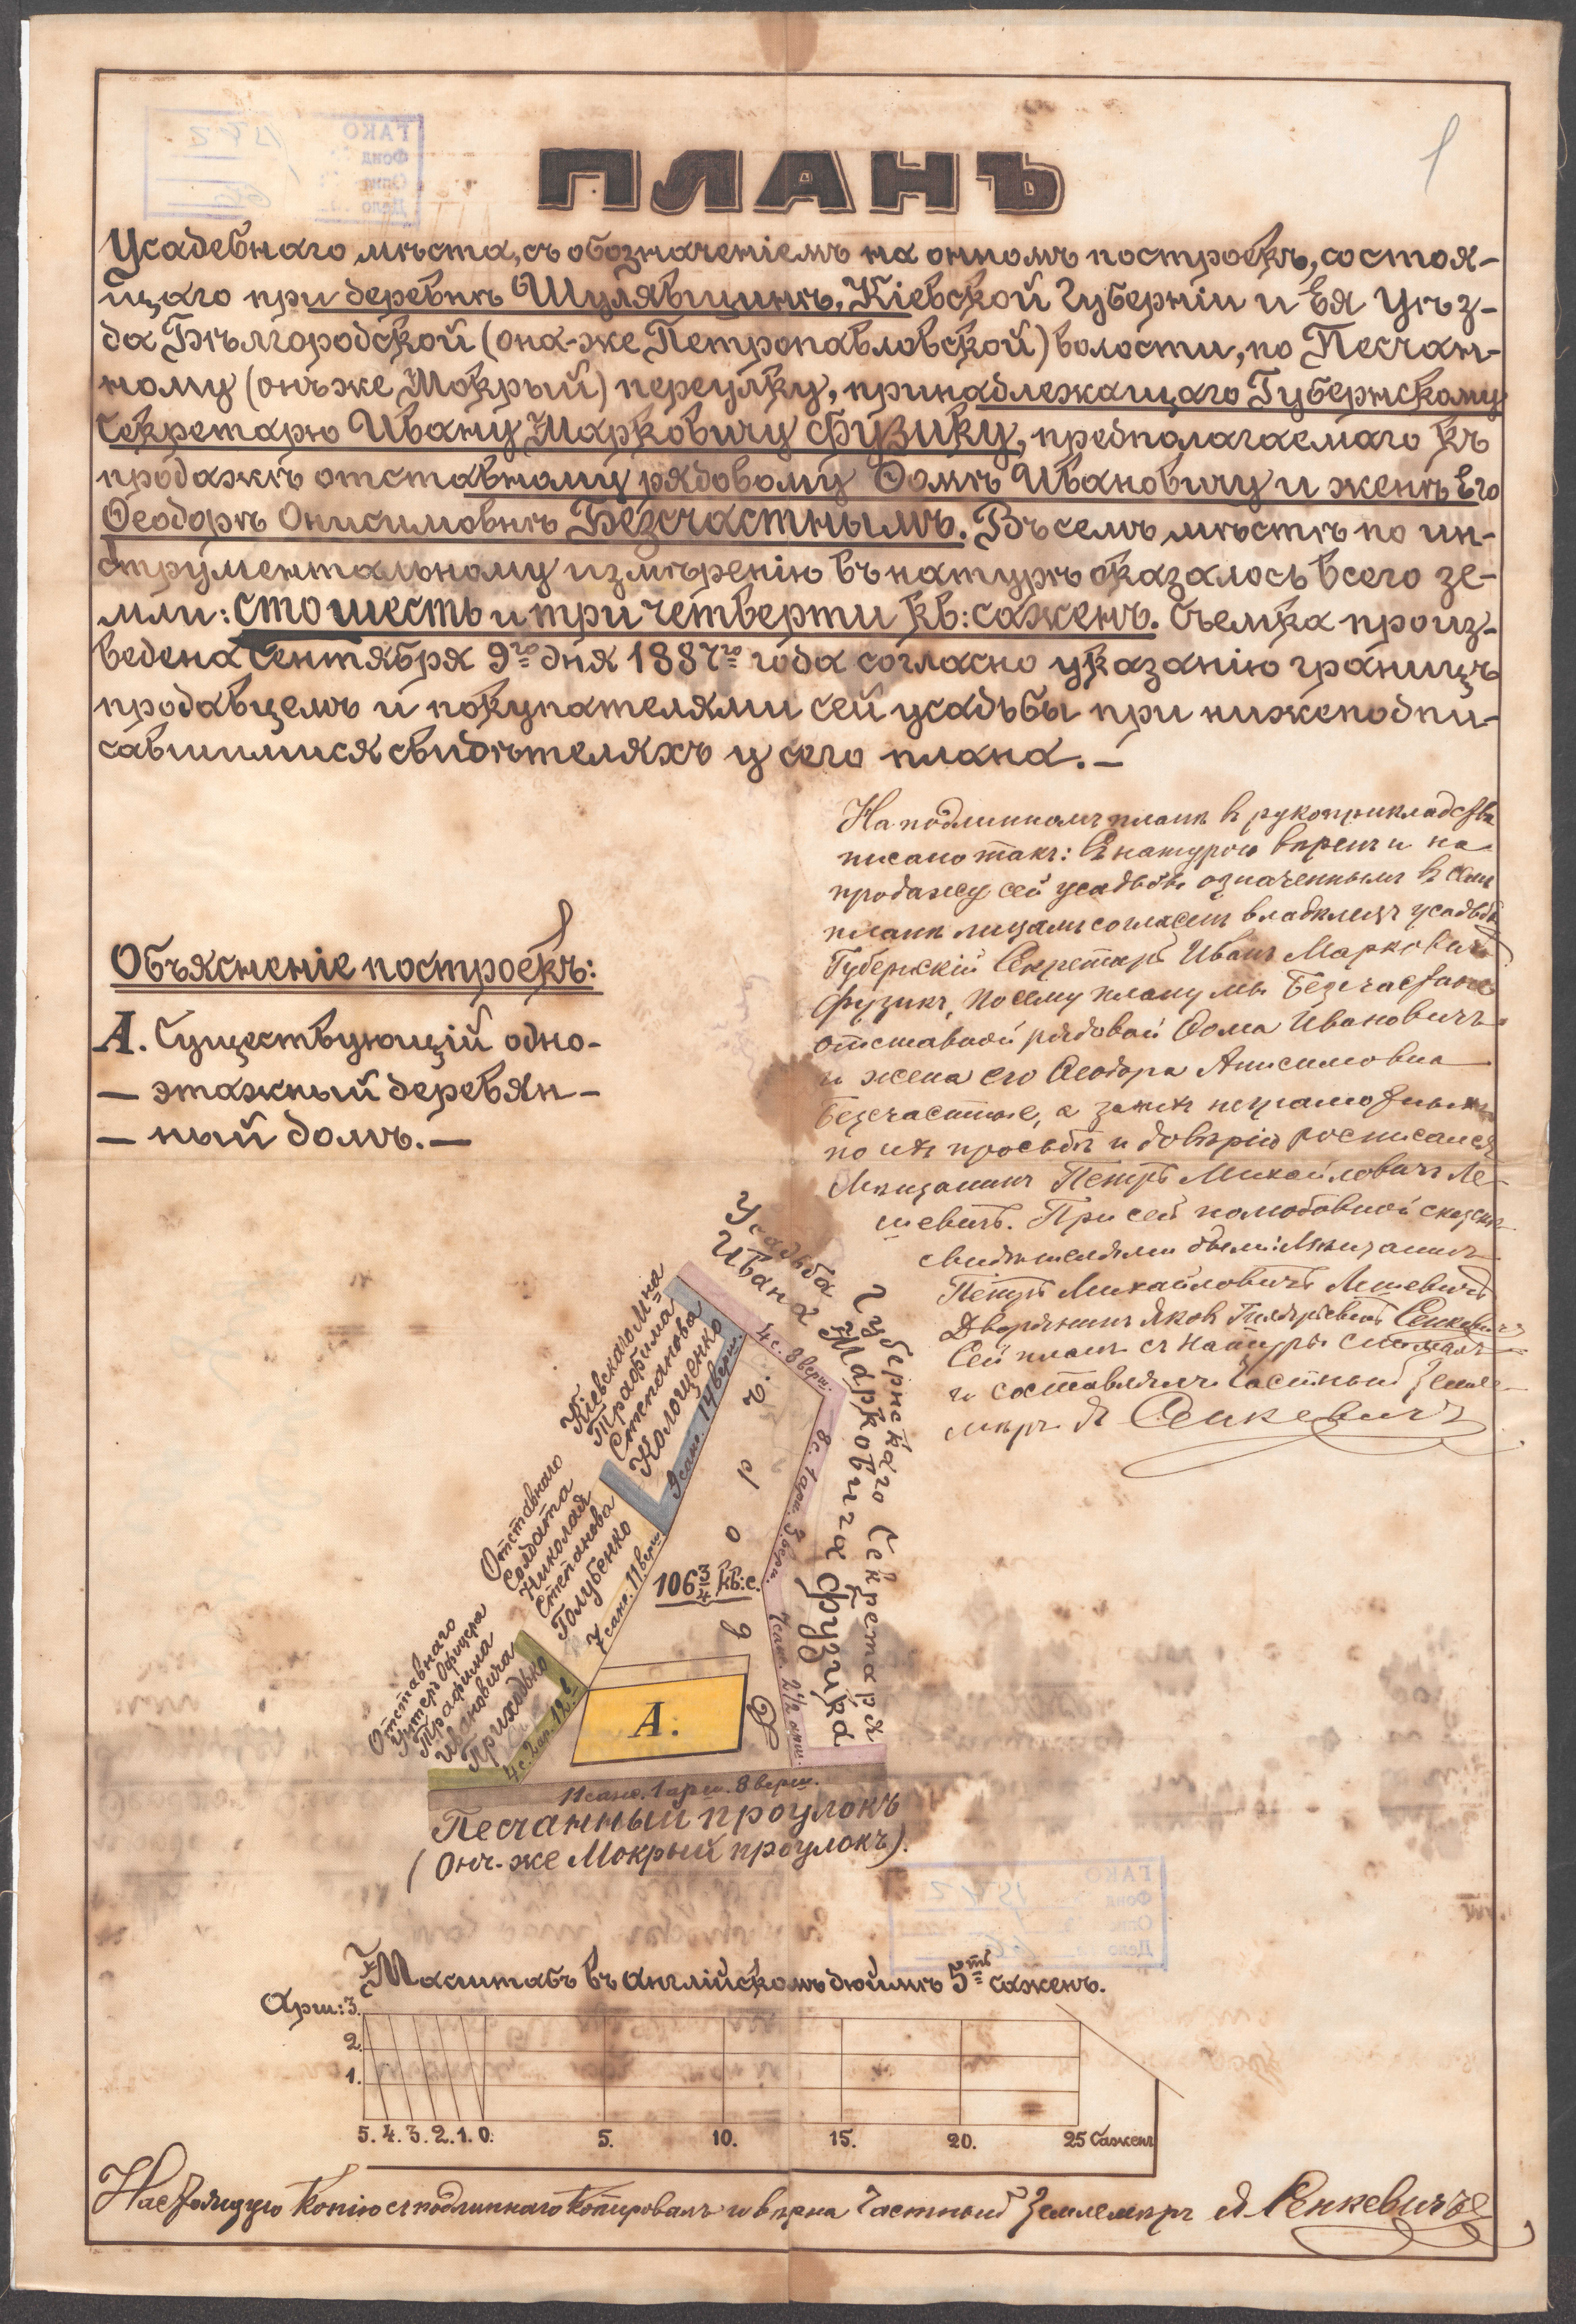 ПЛАНЪ
1
Усадебнаго мѣста, съ обозначеніемъ на ономъ построекъ, состоя-
щаго при деревнѣ Шулявщинѣ, Кіевской Губерніи и Ея Уѣз-
да Бѣлгородской (она-же Петропавловской) волости, по Песчан-
ному (онъ же Мокрый) переулку, принадлежащаго Губернскому
Секретарю Ивану Марковичу Фузику, предполагаемаго къ
продажѣ отставному рядовому Ѳомѣ Ивановичу и женѣ Его
Ѳеодорѣ Онисимовнѣ Безсчастнымъ. Въ семъ мѣстѣ по ин-
струментальному измѣренію въ натурѣ оказалось всего зе-
мли: сто шесть и три четверти кв: саженъ. Съемка произ-
ведена Сентября 9го дня 1887го года согласно указанію границъ
продавцемъ и покупателями сей усадьбы при нижеподпи-
савшимися свидѣтеляхъ у сего плана. —
На подлинномъ планѣ въ рукоприкладства
писано такъ: Съ натурою вѣренъ и на
продажу сей усадьбы означеннымъ въ семъ
планѣ лицамъ согласенъ владѣлецъ усадьбы
Губернскій Секретарь Иванъ Марковичъ
Фузикъ, по сему плану мы Безсчастные
отставной рядовой Ѳома Ивановичъ
и жена его Ѳеодора Анисимовна
Безсчастные, а за нихъ неграмотныхъ
по ихъ просьбѣ и довѣрію росписался
Мѣщанинъ Петръ Михайловичъ Ле-
шевичъ. При сей полюбовной сказкѣ
свидѣтелями были: Мѣщанинъ
Петръ Михайловичъ Лешевичъ
Дворянинъ Яковъ Сенкевичъ
Сей планъ съ натуры снималъ
и составлялъ Частный Землем-
мѣръ Я Сенкевичъ
Объясненіе построекъ:
А. Существующій одно-
— этажный деревян-
— ный домъ. —
Усадьба
Ивана Марковича Фузика
Губернскаго Секретаря
Кіевскаго Мѣ-на
Трафима
Степанова
Колощенко
4 с. 8 верш.
9 саж. 14 верш.
8 с. 1 арш. 3 верш.
Дворъ.
Отставнаго
Солдата
Николая
Степанова
Голубенко
7 саж. 11 верш.
106 3/4 кв: с.
7 саж. 2 1/2 арш.
Отставнаго
Унтеръ Офицера
Трафима
Ивановича
Приходько
4 с. 2 ар. 12 в.
А.
11 саж. 1 арш. 8 верш.
Песчанный проулокъ
(Онъ-же Мокрый проулокъ).
Масштабъ въ англійскомъ дюймѣ 5ть саженъ.
Арш: 3.
2.
1.
5. 4. 3. 2. 1. 0. 5. 10. 15. 20. 25 Саженъ
Настоящую Копію съ подлиннаго Копировалъ и вѣрна Частный Землемѣръ Я Сенкевичъ
ГАКО
Фонд
Опис
Дело
ГАКО
Фонд 1542
Опис
Дело